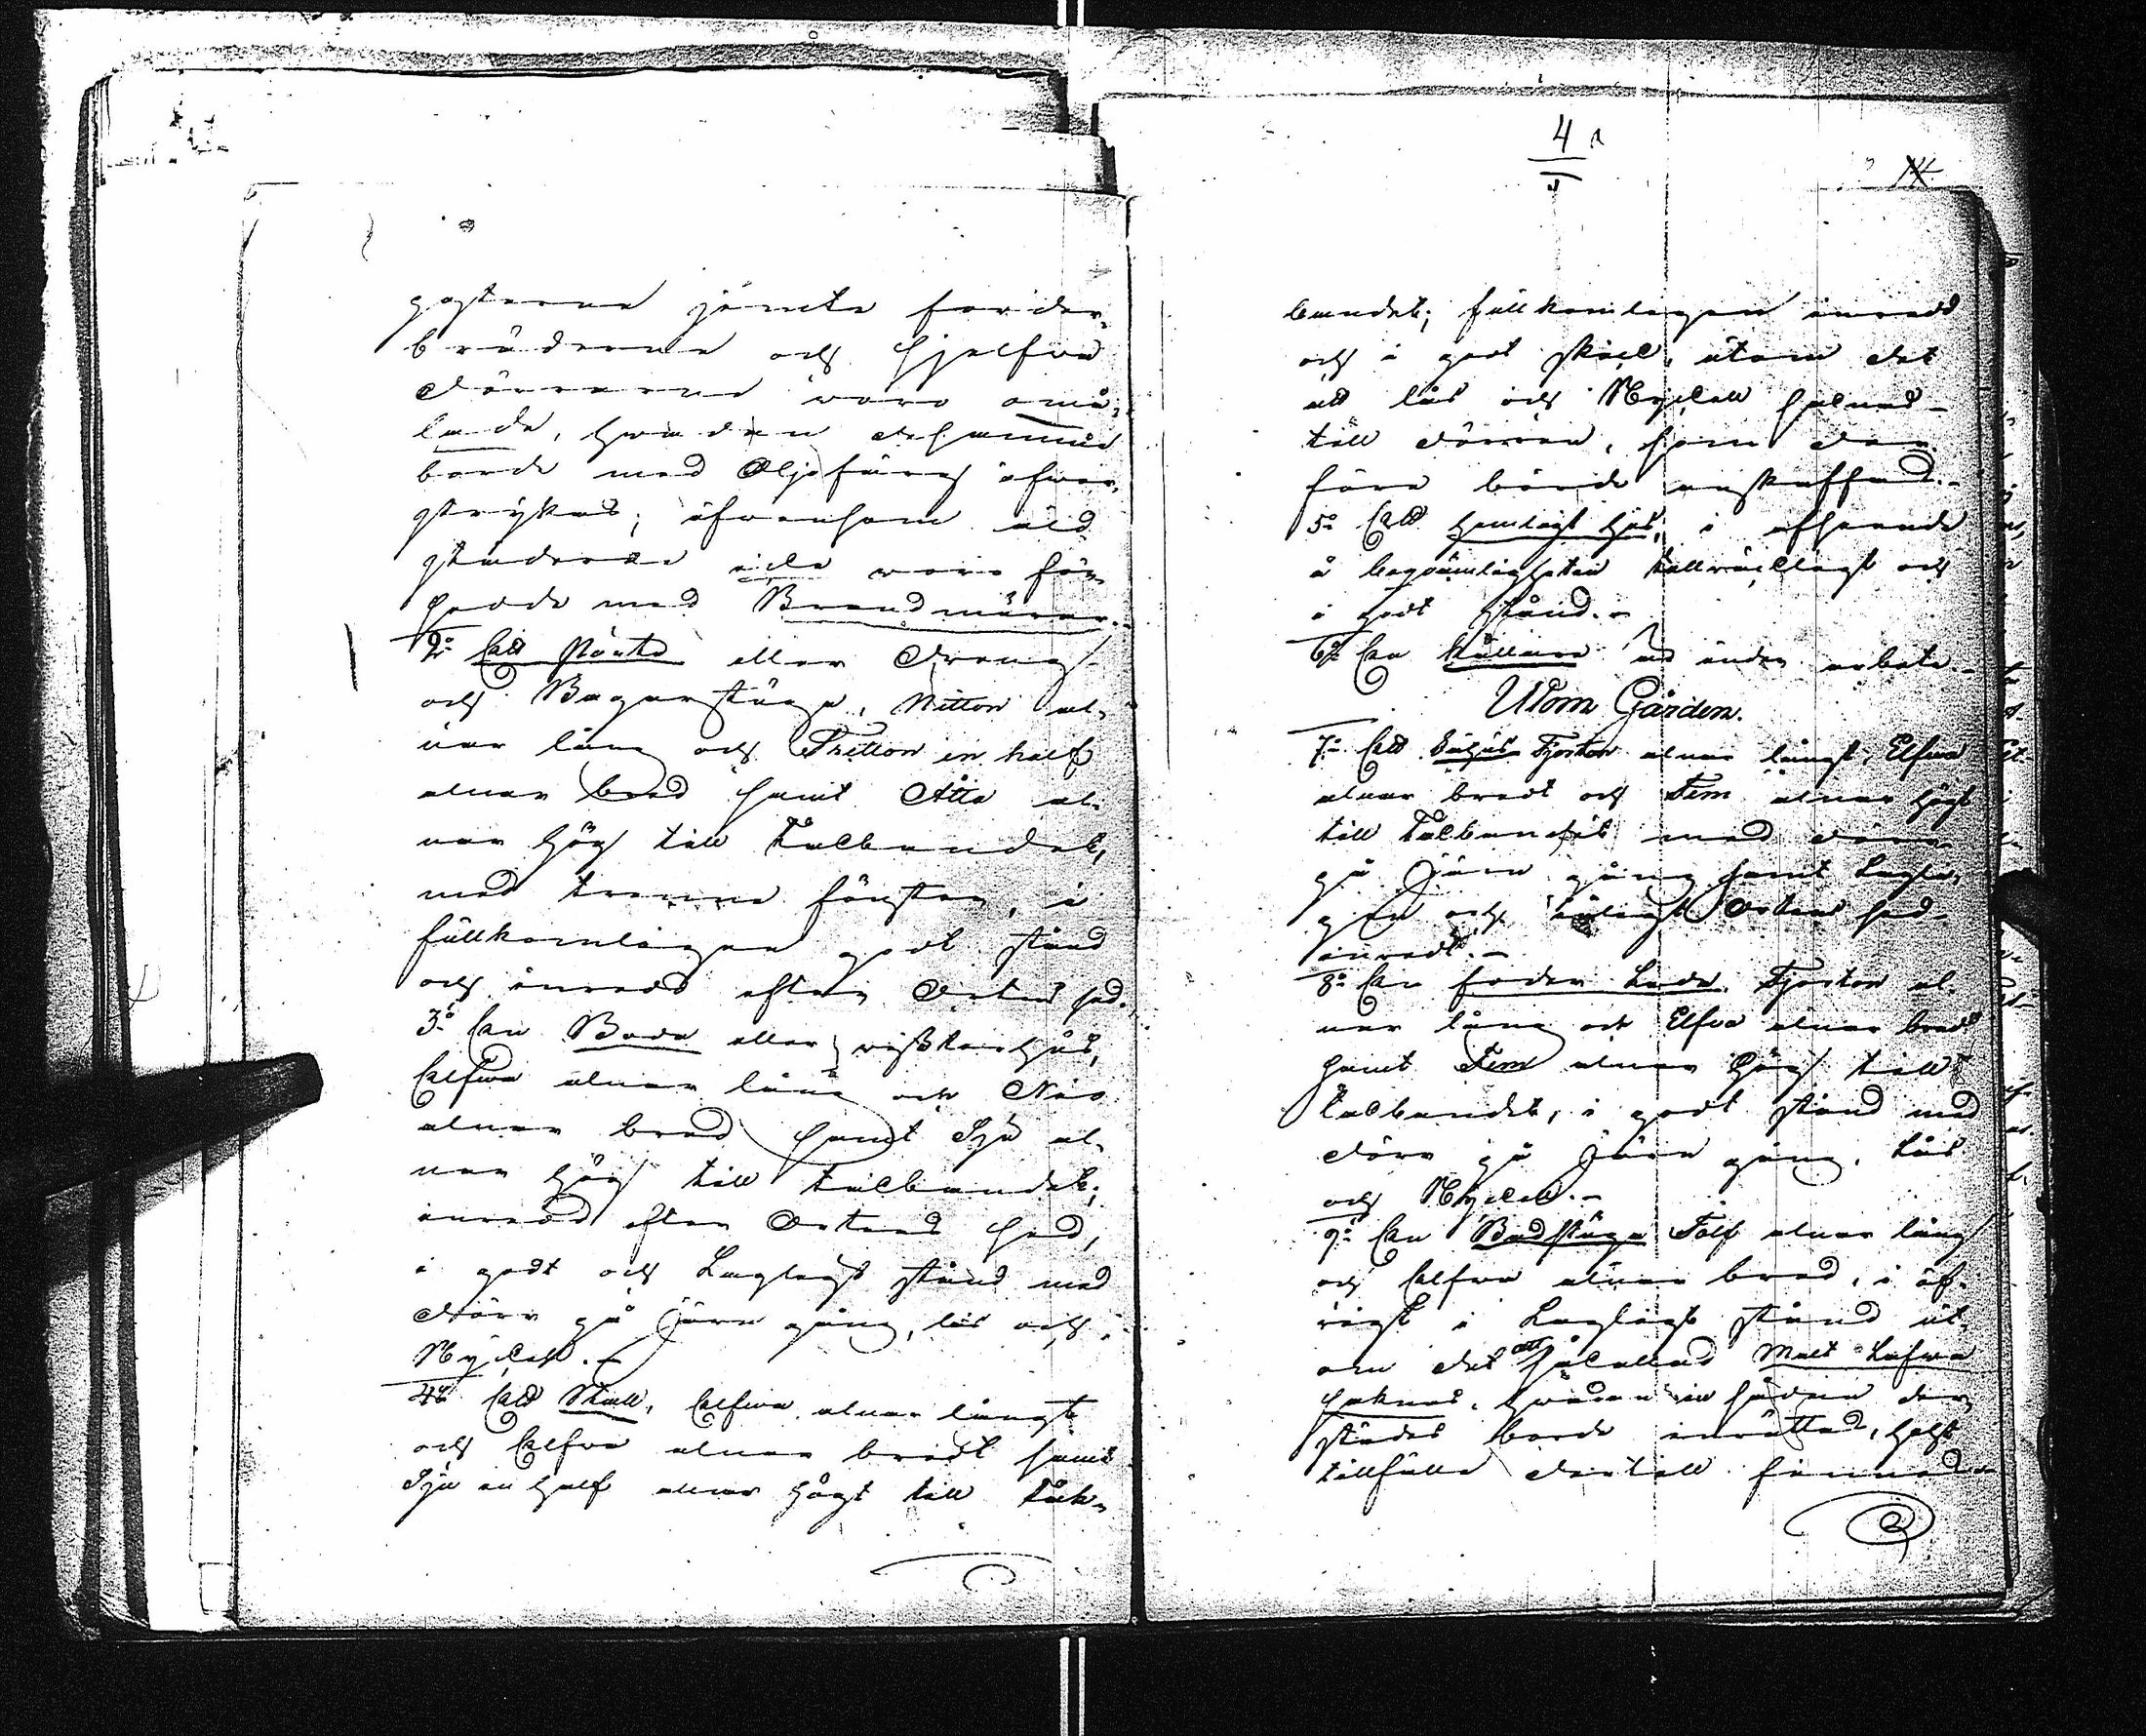 posterne jemte foder-
bräderne och sjelfva
dörrarne voro omå-
lade, hwadan desamma
borde med Oljefärg öfwer-
strykas; äfvensom eld-
städerne icke voro för-
sedde med Brandmurar.
2:o Ett Pörte eller Dreng-
och Bagarstuga, Nitton al-
nar lång och Tretton en half
alnar bred samt Åtta al-
nar hög till Takbandet,
med trenne fönster, i
fullkomligen godt stånd
och inredd efter Ortens sed.
3:o En Bod eller visthus,
Elfva alnar lång och Nio
alnar bred samt Sju al-
nar hög till takbandet,
inredd efter Ortens sed,
i godt och Lagligt stånd med
dörr på Jern gång, lås och
Nyckel.-
4:o Ett Stall, Elfva alnar långt
och Elfva alnar bredt samt
Sju en half alnar högt till tak-
4
bandet; fullkomligen inredd
och i godt skick, utom det
att lås och Nyckel saknas
till dörren, som der-
före borde anskaffas.-
5:o Ett Hemligt hus, i afseende
å beqvämligheten tillräckligt och
i godt stånd.-
6:o En Källare under arbete.-
Utom Gården.
7:o Ett Fähus Fjorton alnar långt, Elfva
alnar bredt och Fem alnar högt
till Takbandet med dörr
på Jern gång samt Lagli-
gen och enligt Ortens sed
inredt.-
8:o En foder Lada Fjorton al-
nar lång och Elfva alnar bred
samt Fem alnar hög till
takbandet, i godt stånd med
dörr på Jern gång, lås
och Nyckel.-
9:o En Badstuga Tolf alnar lång
och Elfva alnar bred, i öf-
rigt i Lagligt stånd ut-
om det att såkallad Malt Lafwe
saknas, hwadan en sådan der-
städes borde inrättas, helst
tillfälle dertill finnes.-